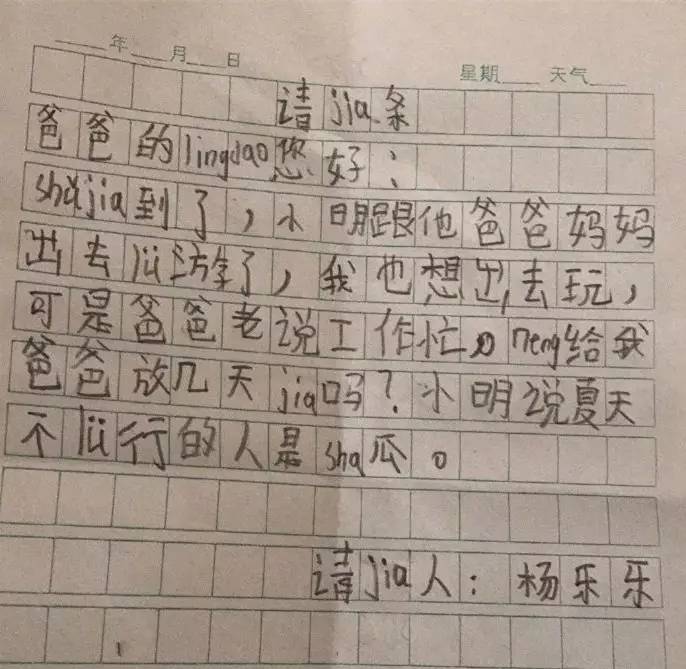 年 月 日
星期 天气
请jia条
爸爸的lingdao您好：
shǔjia到了，小明跟他爸爸妈妈
出去lü游了，我也想出去玩，
可是爸爸老说工作忙。neng给我
爸爸放几天jia吗？小明说夏天
不lü行的人是sha瓜。
请jia人：杨乐乐